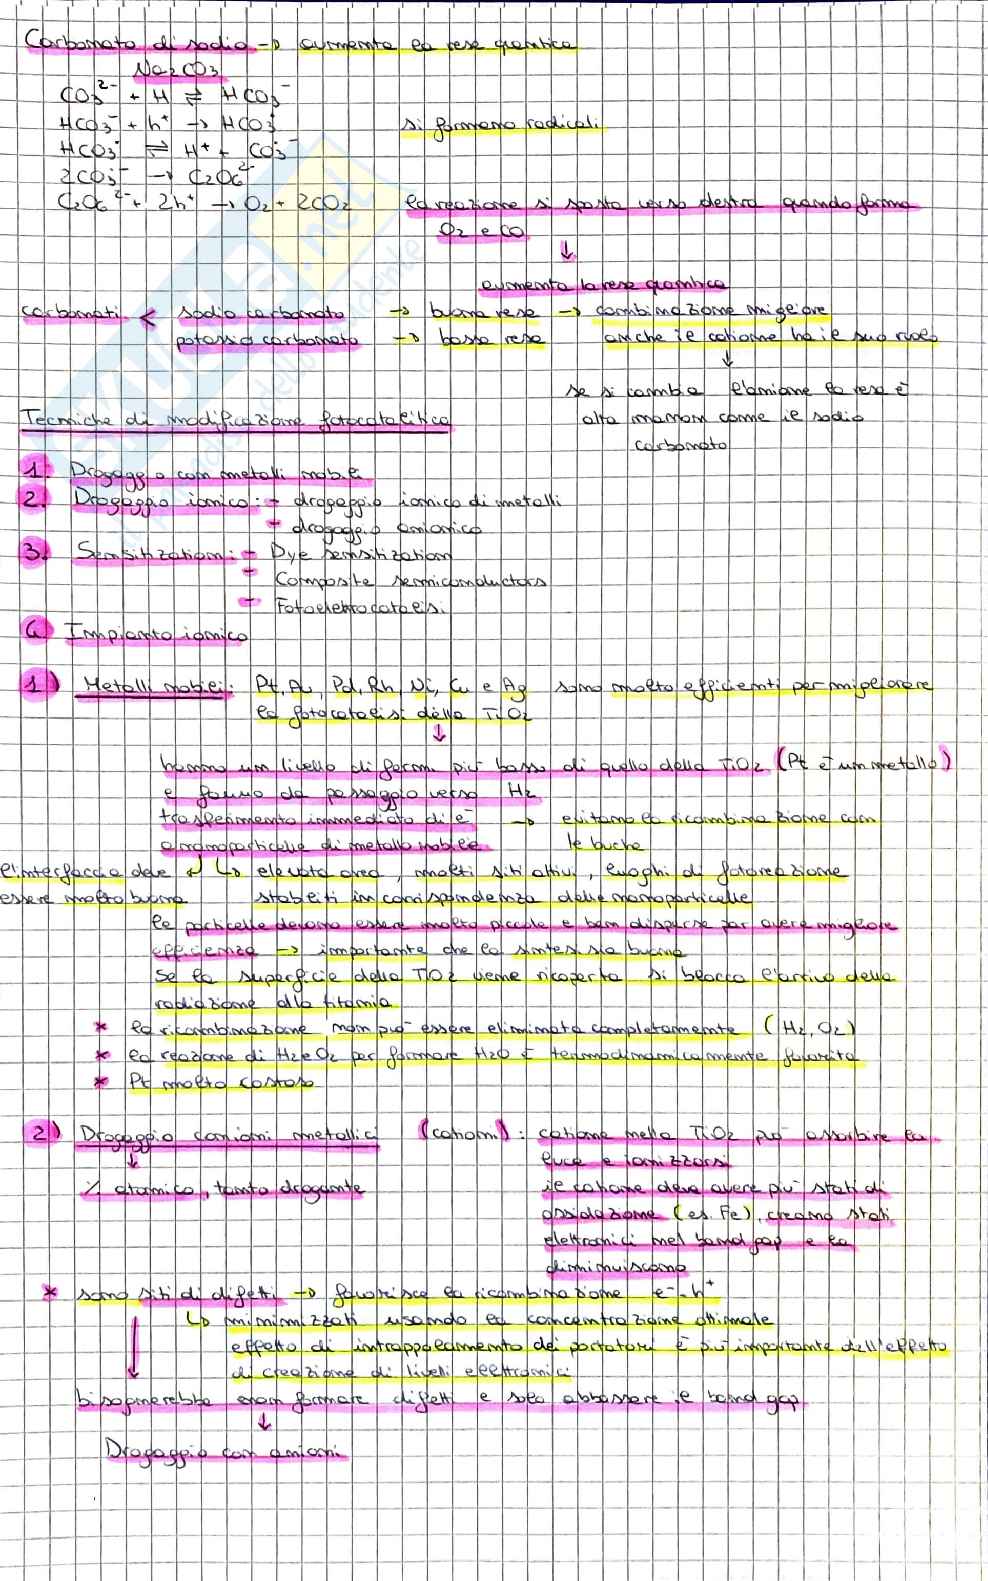 Carbonato di sodio → aumenta la resa quantica
Na2CO3
CO3²⁻ + H ⇌ HCO3⁻
HCO3⁻ + h⁺ → HCO3˙ si formano radicali
HCO3˙ ⇌ H⁺ + CO3˙⁻
2CO3˙⁻ → C2O6²⁻
C2O6²⁻ + 2h⁺ → O2 + 2CO2 la reazione si sposta verso destra quando forma
O2 e CO
↓
aumenta la resa quantica
carbonati < sodio carbonato → buona resa → combinazione migliore
potassio carbonato → bassa resa anche il catione ha il suo ruolo
↓
se si cambia l'anione la resa è
alta ma non come il sodio
carbonato
Tecniche di modificazione fotocatalitica
1. Drogaggio con metalli nobili
2. Drogaggio ionico: - drogaggio ionico di metalli
- drogaggio anionico
3. Sensitization: - Dye sensitization
- Composite semiconductors
- Fotoelettrocatalisi
4 Impianto ionico
1) Metalli nobili: Pt, Au, Pd, Rh, Ni, Cu e Ag sono molto efficienti per migliorare
la fotocatalisi della TiO2
↓
hanno un livello di fermi più basso di quello della TiO2 (Pt è un metallo)
e fanno da passaggio verso H2
trasferimento immediato di e⁻ → evitano la ricombinazione con
a nanoparticelle di metallo nobile le buche
l'interfaccia deve ↲ ↳ elevata area, molti siti attivi, luoghi di fotoreazione
essere molto buona stabiliti in corrispondenza delle nanoparticelle
le particelle devono essere molto piccole e ben disperse per avere migliore
efficienza → importante che la sintesi sia buona
Se la superficie della TiO2 viene ricoperta si blocca l'arrivo della
radiazione alla titania
* la ricombinazione non può essere eliminata completamente (H2, O2)
* la reazione di H2 e O2 per formare H2O è termodinamicamente favorita
* Pt molto costoso
2) Drogaggio con ioni metallici (cationi): catione nella TiO2 può assorbire la
↓ luce e ionizzarsi
% atomico, tanto drogante il catione deve avere più stati di
ossidazione (es. Fe), creano stati
elettronici nel band gap e la
diminuiscono
* sono siti di difetti → favorisce la ricombinazione e⁻-h⁺
↳ minimizzati usando la concentrazione ottimale
effetto di intrappolamento dei portatori è più importante dell'effetto
di creazione di livelli elettronici
bisognerebbe non formare difetti e solo abbassare il band gap
↓
Drogaggio con anioni